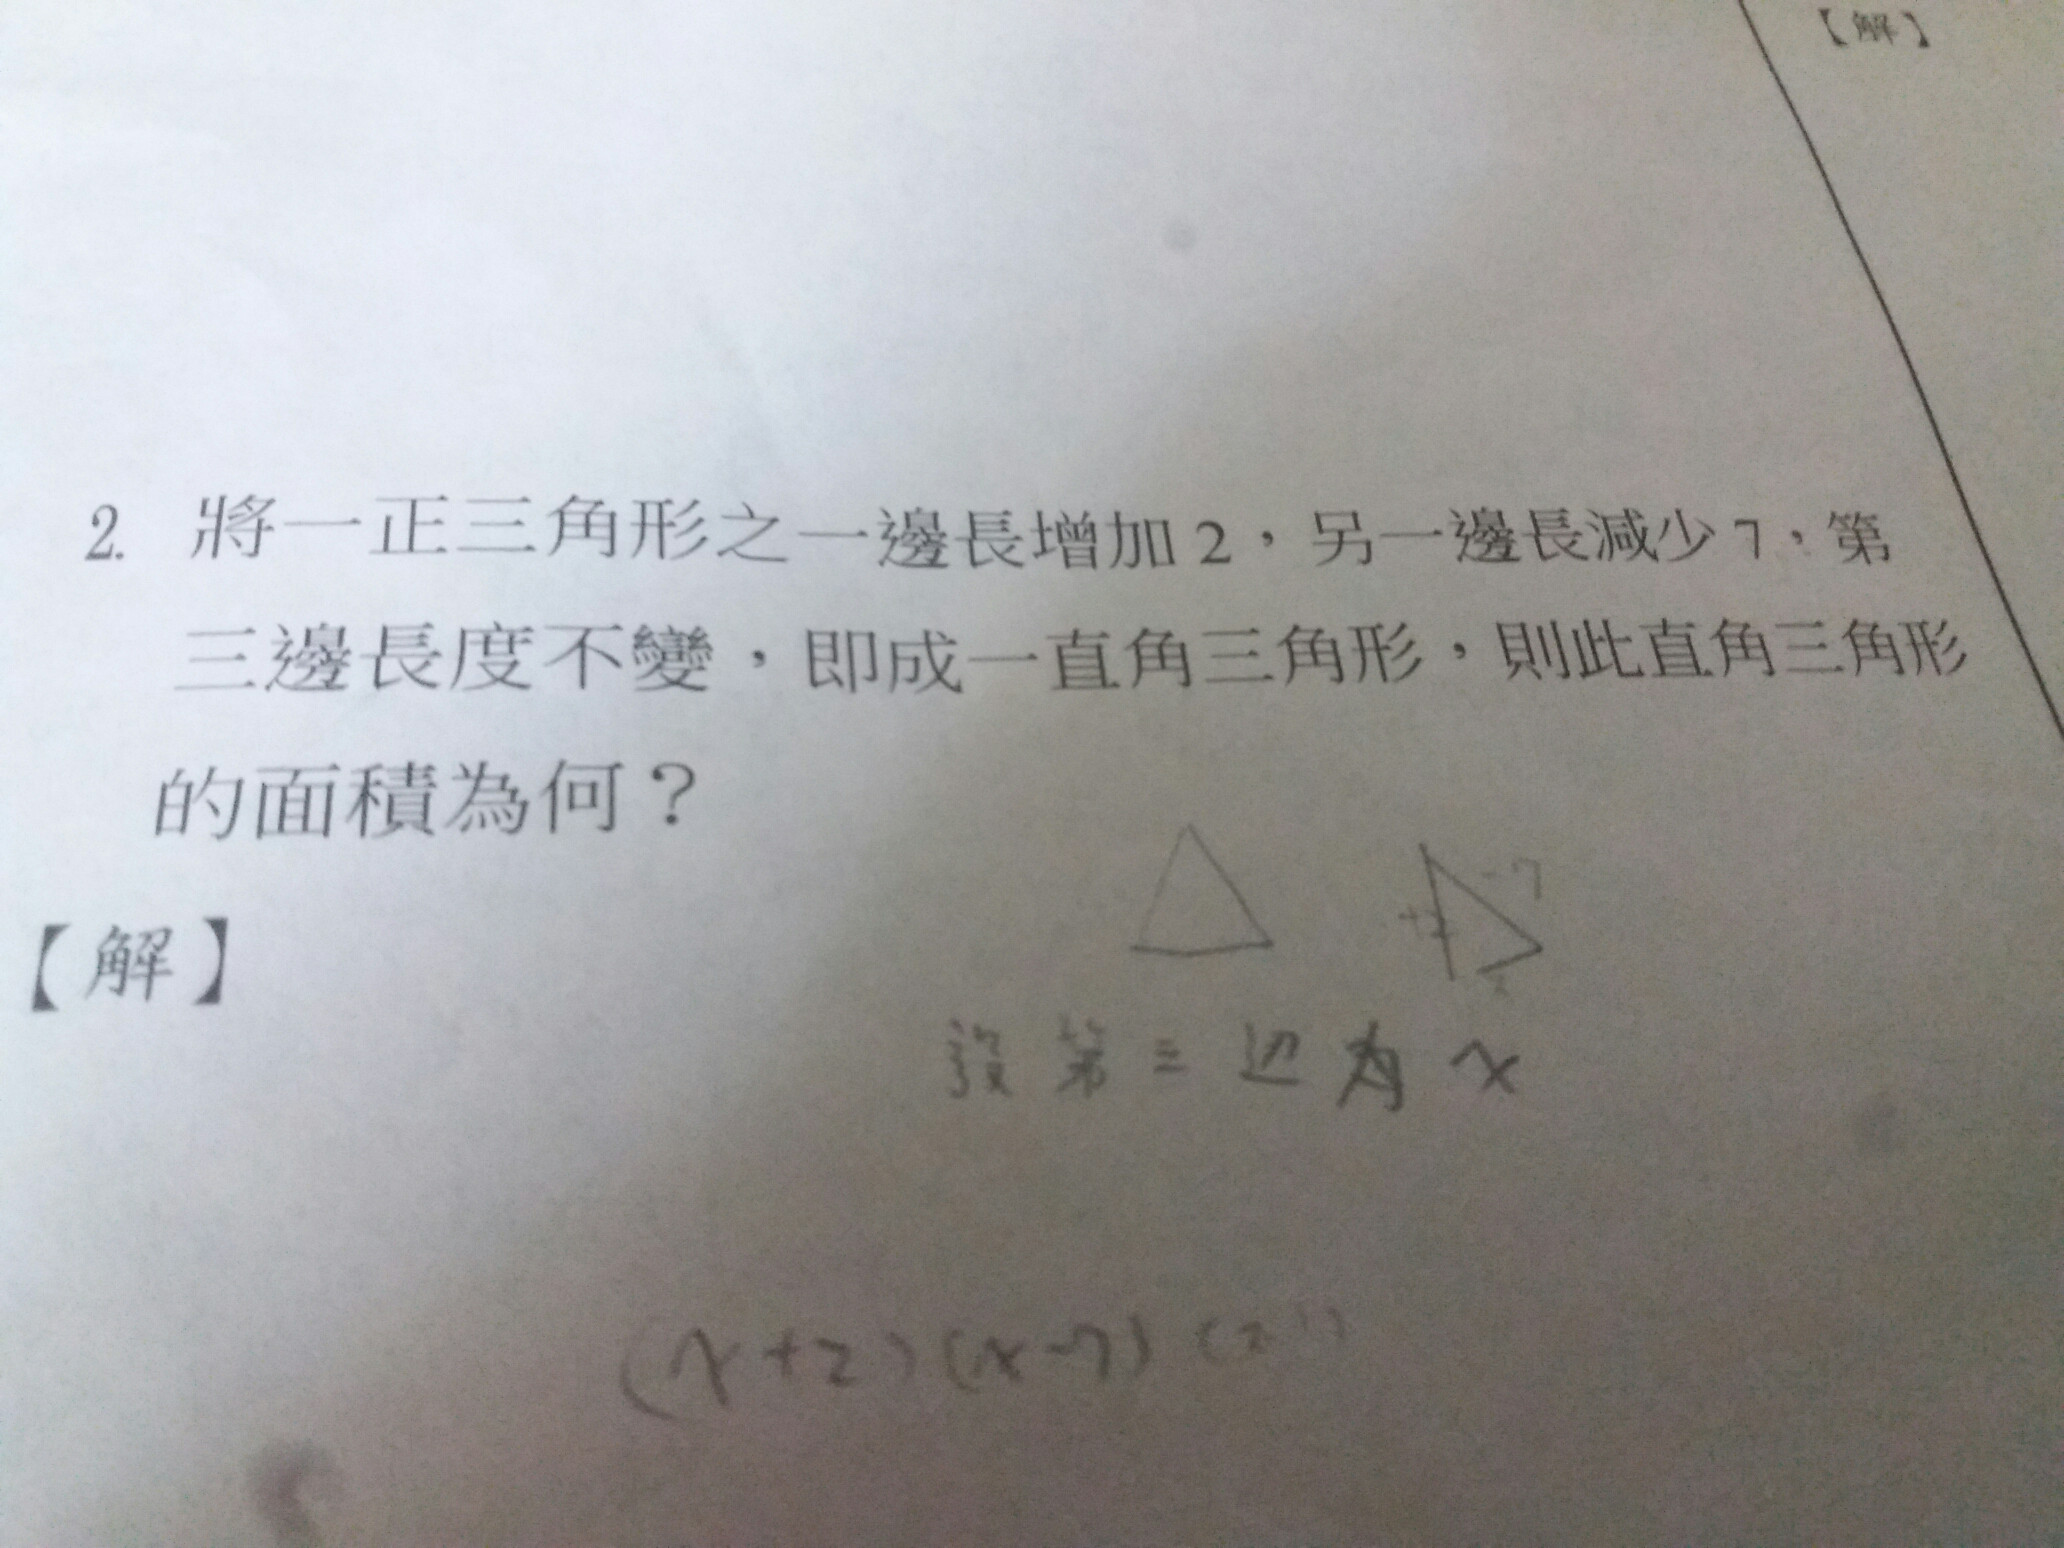 【解】
2. 將一正三角形之一邊長增加2，另一邊長減少7，第
三邊長度不變，即成一直角三角形，則此直角三角形
的面積為何？
【解】
-7
+2
設第三边為 x
(x+2)(x-7)